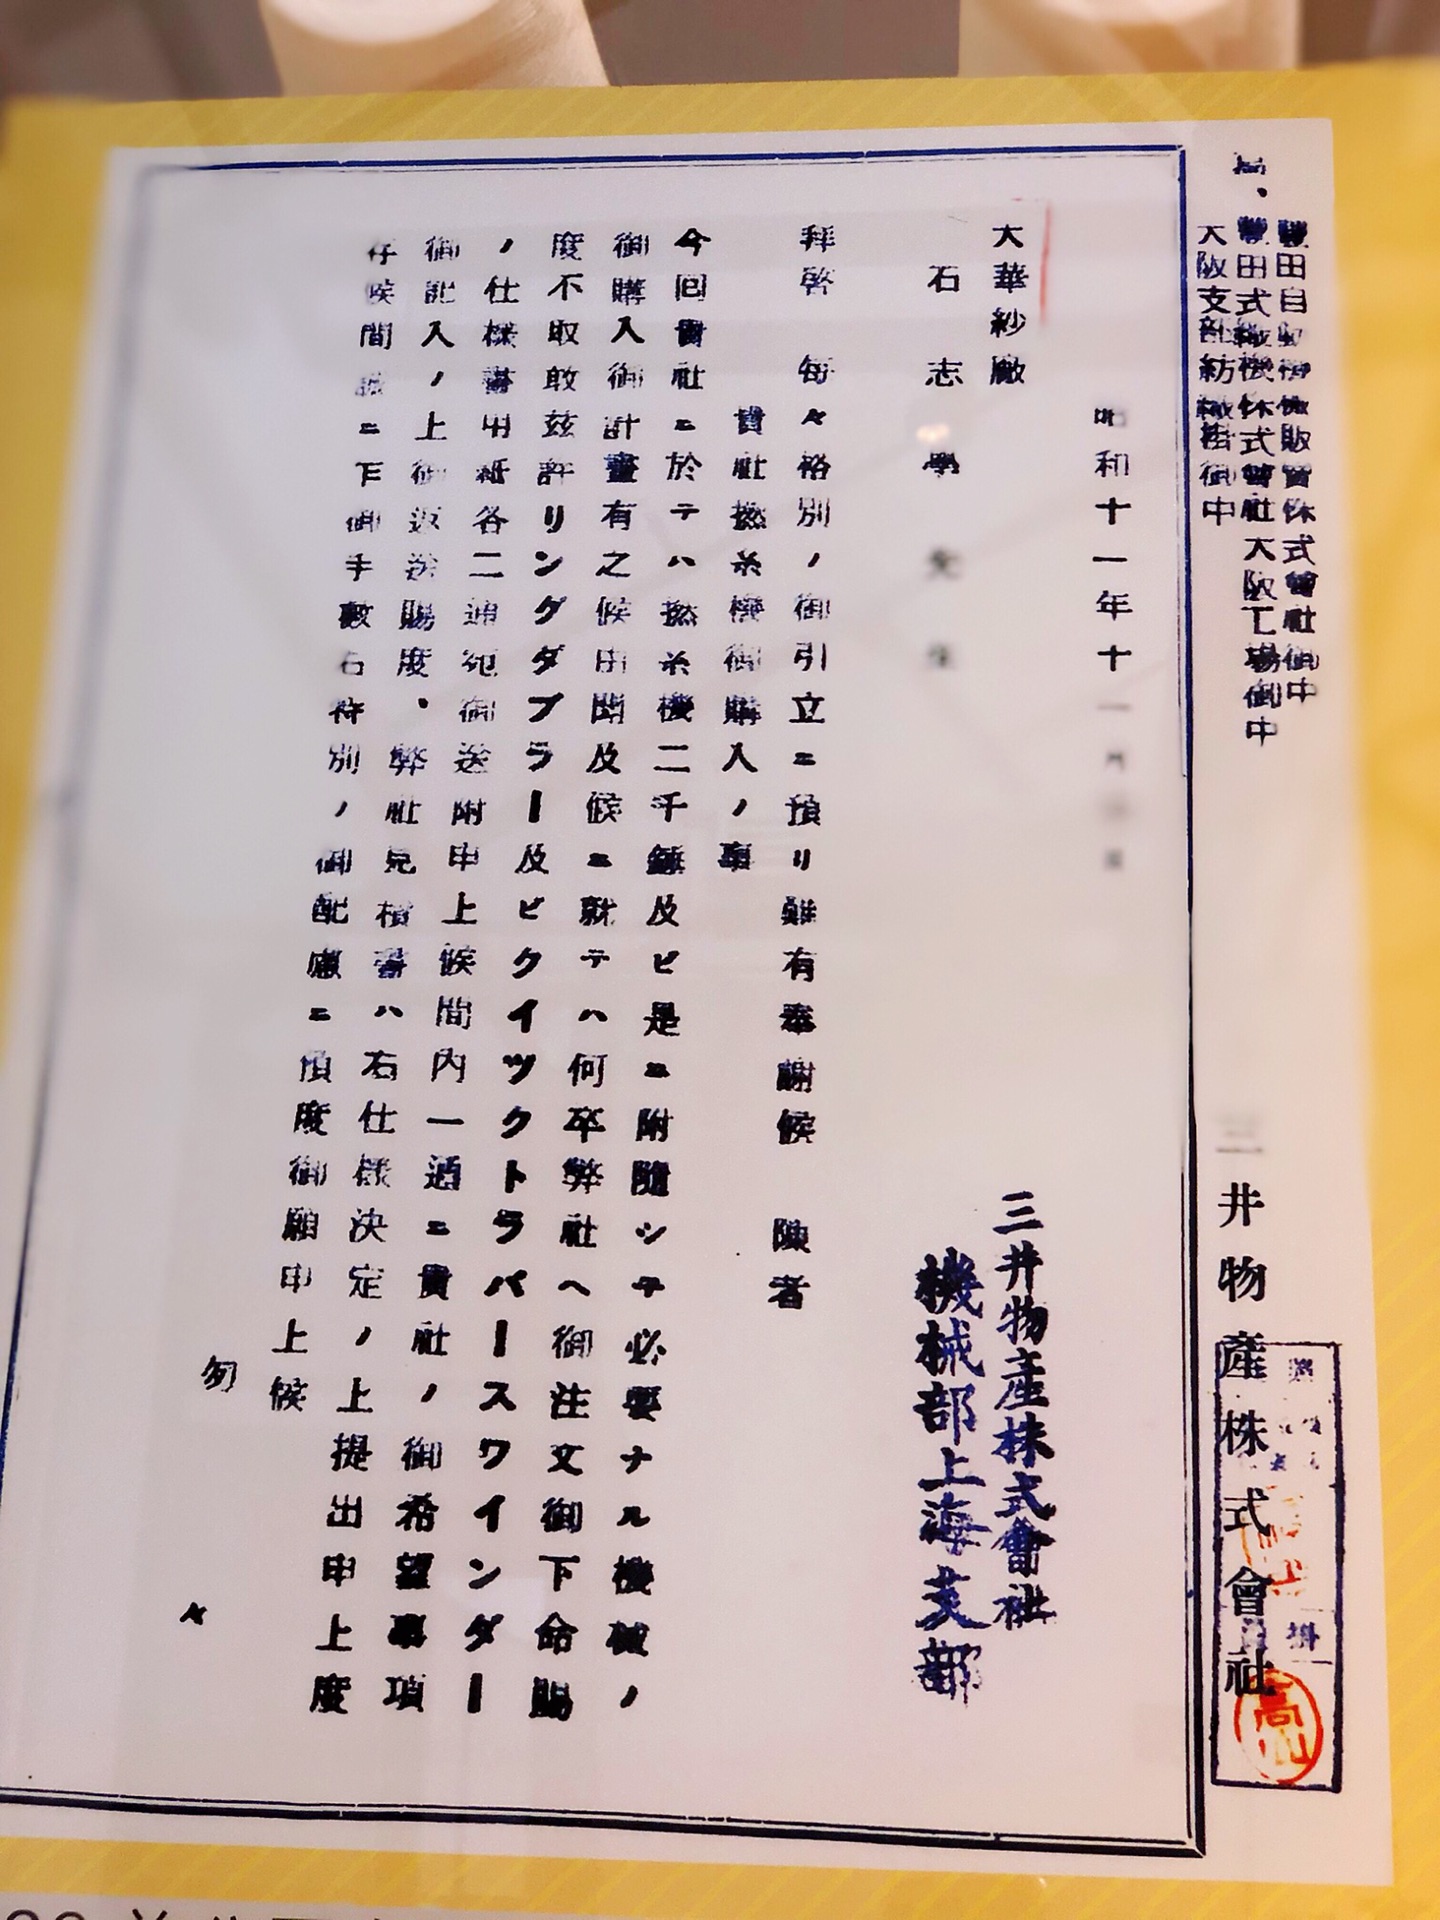 豊田自動織機販賣株式會社御中
豊田式織機株式會社大阪工場御中
大阪支部紡織掛御中
三井物產株式會社
昭和十一年十一月
大華紗廠
石志學先生
三井物產株式會社
機械部上海支部
拜啓 每々格別ノ御引立ニ預リ難有奉謝候 陳者
貴社撚糸機御購入ノ事
今囘貴社ニ於テハ撚糸機二千錘及ビ是ニ附隨シテ必要ナル機械ノ
御購入御計畫有之候由聞及候ニ就テハ何卒弊社ヘ御注文御下命賜
度不取敢玆許リングダブラー及ビクイックトラバースワインダー
ノ仕樣書用紙各二通宛御送附申上候間内一通ニ貴社ノ御希望事項
御記入ノ上御返送賜度、弊社見積書ハ右仕樣決定ノ上提出申上度
存候間誠ニ乍御手數右特別ノ御配慮ニ預度御願申上候
匆々
掛